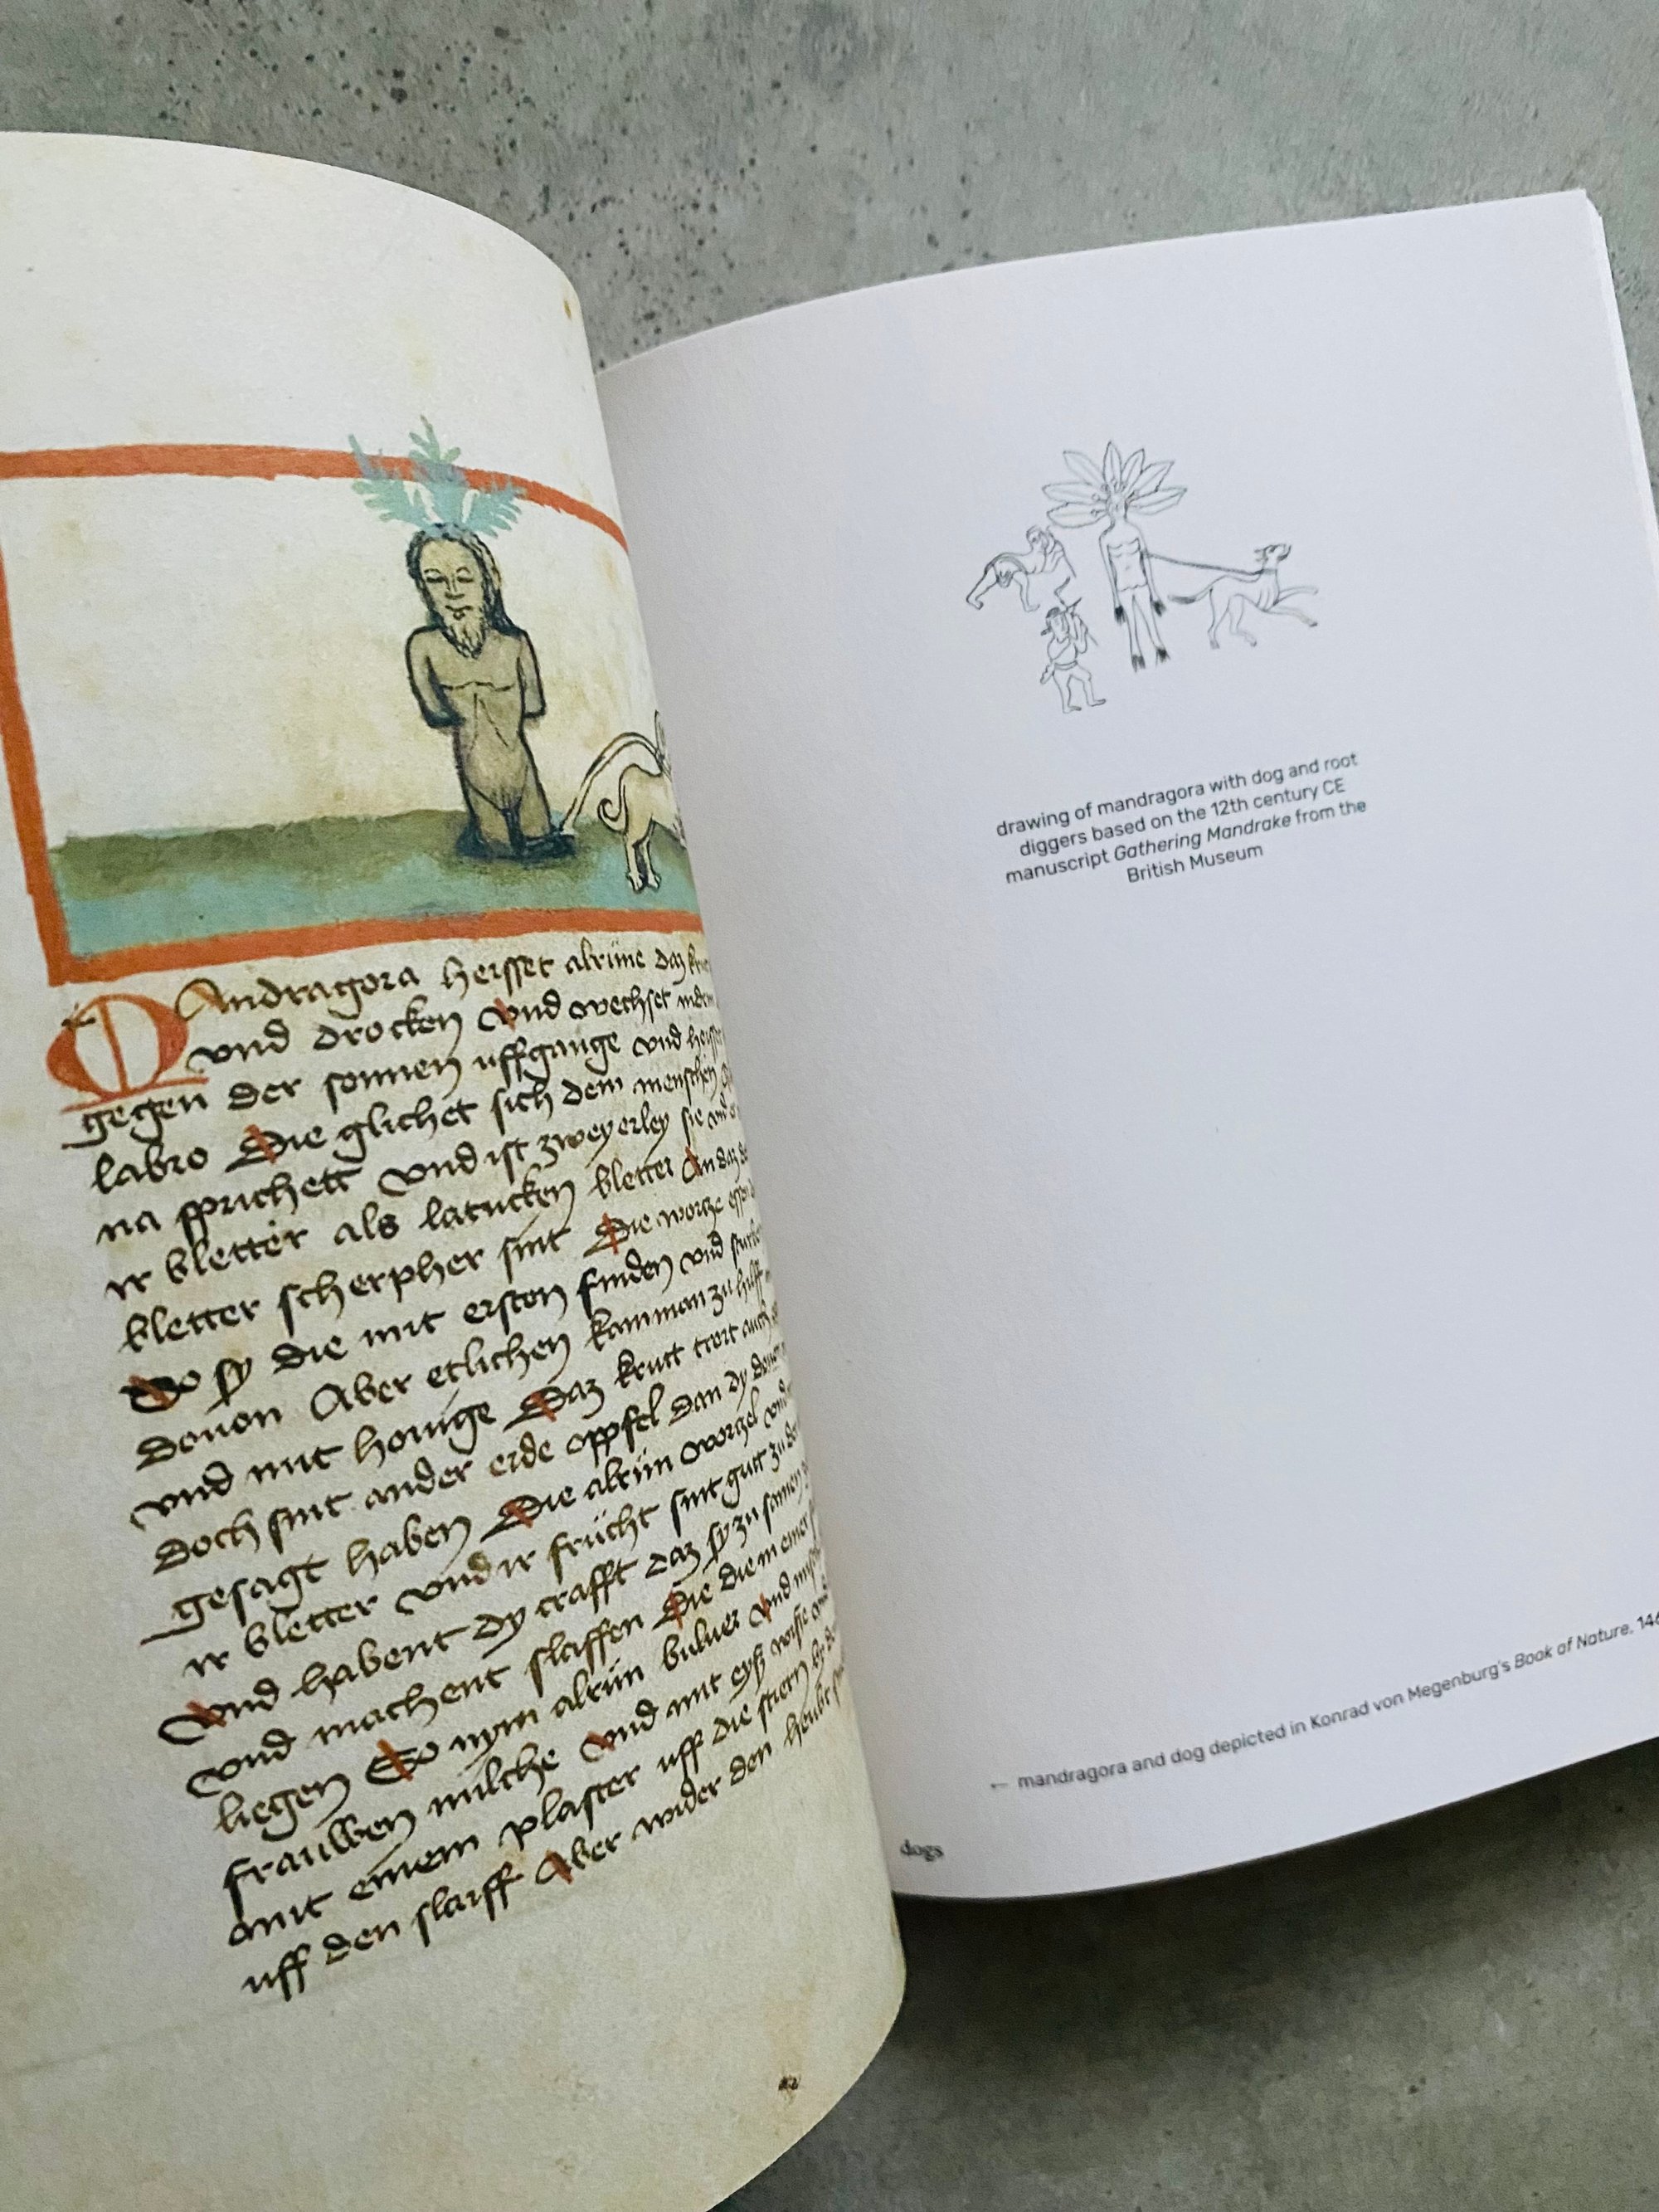 Mandragora heisset alrune daz
vnd drocken vnd wechset
gegen der sonnen uffgange vnd
labro Die glichet sich dem menschen
na sprichett vnd ist zweyerley sie vnd
ir bletter als latucken bletter An daz
bletter scherpher sint Die worcze essen
So sy die mit ersten finden vnd
douon Aber etlichen kam man zu hilff
vnd mit honige Daz krutt trort auch
Doch sint ander erde oppfel dan dy
gesagt haben Die alrun worczel vnd
ir bletter vnd ir frücht sint gutt zu
vnd habent dy crafft daz sy zu samen
vnd machent slaffen Die die in einer
liegen So nym alrun buluer vnd
frauwen milche vnd mit eyß wisse
mit einem plaster uff die stiern
uff den slaiff Aber wider den heubt
drawing of mandragora with dog and root
diggers based on the 12th century CE
manuscript Gathering Mandrake from the
British Museum
← mandragora and dog depicted in Konrad von Megenburg's Book of Nature, 14
dogs